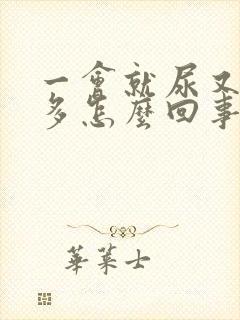 一會就尿又
多怎麼回事
華萊士